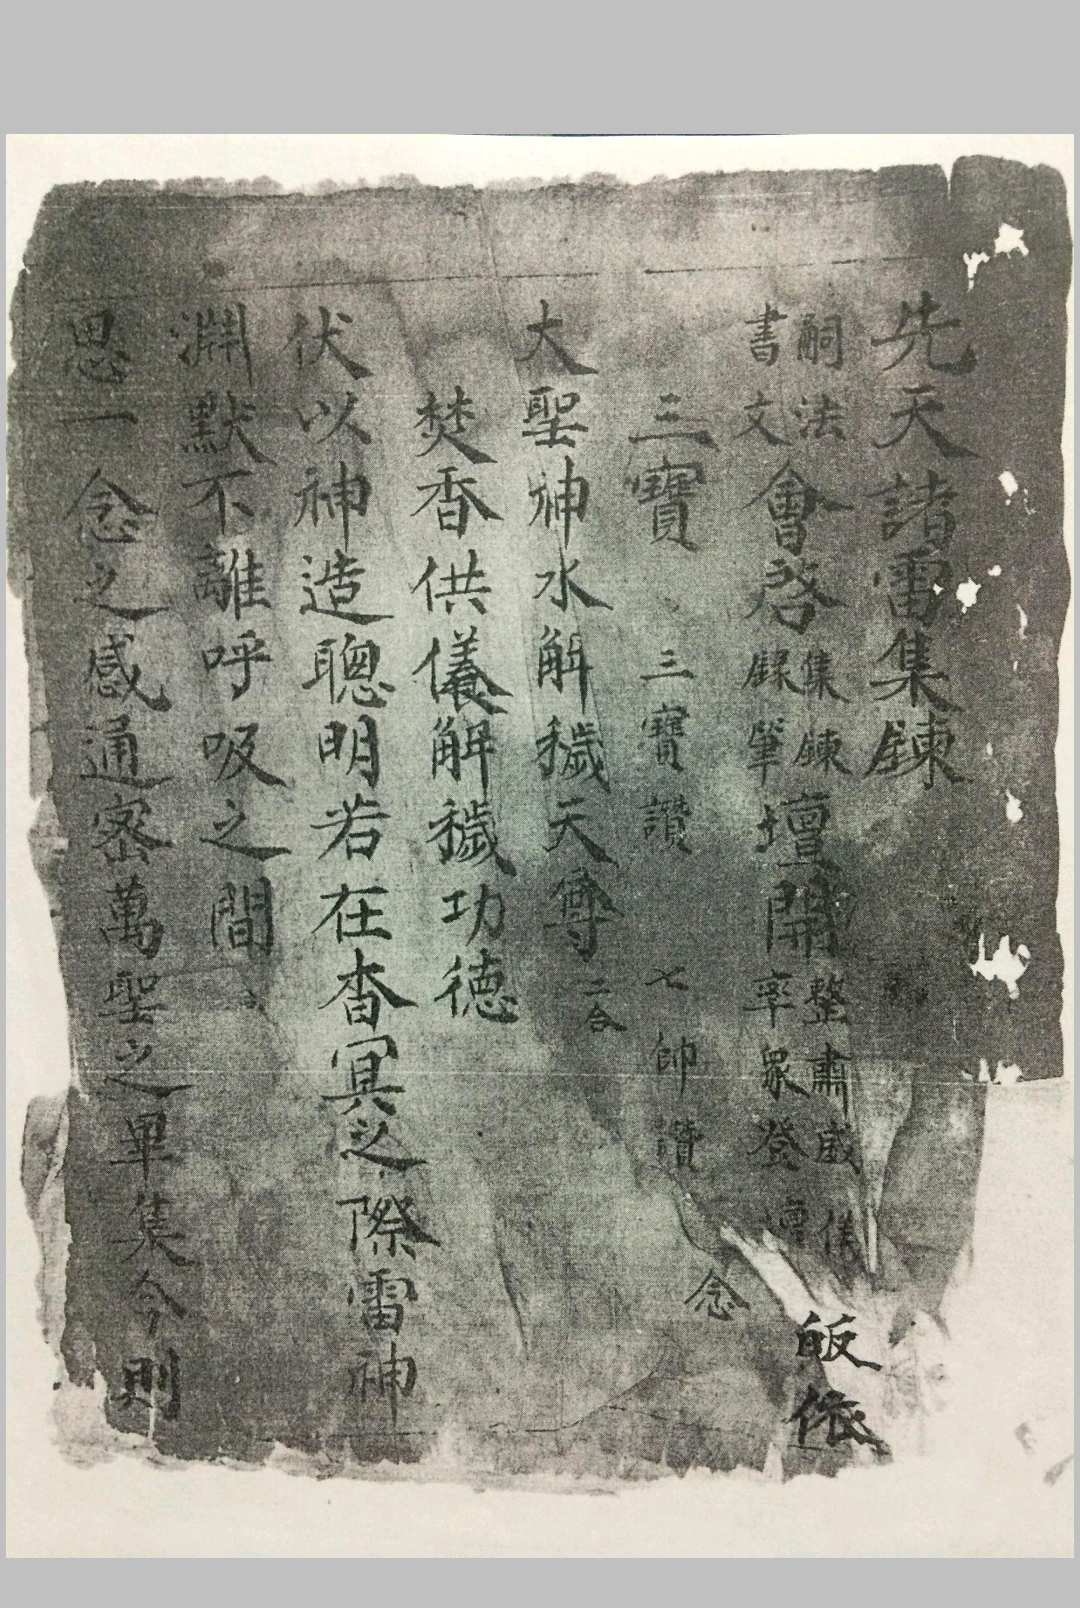 先天諸雷集鍊
嗣法書文會啓集鍊錄筆壇開整肅威儀率眾登壇皈依
三寶 三寶讚 七帥讚 念
大聖神水解穢天尊二合
焚香供儀解穢功德
伏以神造聰明若在杳冥之際雷神
淵默不離呼吸之間
思一念之感通密萬聖之畢集今則